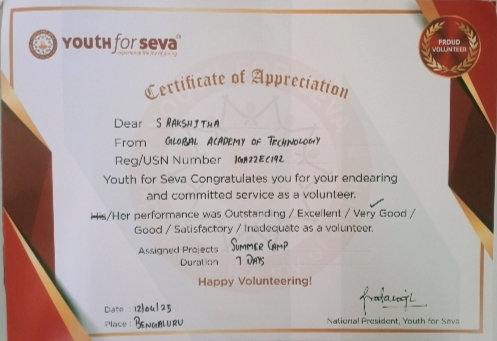 YOUTH for SEVA
PROUD
VOLUNTEER
Certificate of Appreciation
Dear S RAKSHITHA
From GLOBAL ACADEMY OF TECHNOLOGY
Reg/USN Number 1GA22EC192
Youth for Seva Congratulates you for your endearing
and committed service as a volunteer.
His/Her performance was Outstanding / Excellent / Very Good /
Good / Satisfactory / Inadequate as a volunteer.
Assigned Projects SUMMER CAMP
Duration 7 DAYS
Happy Volunteering!
Date : 12/04/25
Place : BENGALURU
National President, Youth for Seva